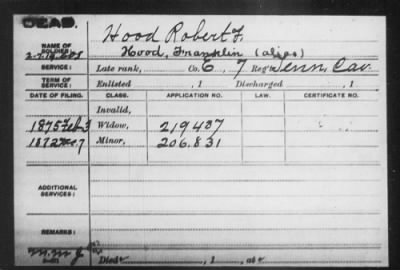 DEAD.
Hood Robert F.
NAME OF SOLDIER:
Hood, Franklin (alias)
SERVICE: Late rank, Co. E 7 Reg't Tenn. Cav.
TERM OF SERVICE: Enlisted , 1 Discharged , 1
DATE OF FILING. CLASS. APPLICATION NO. LAW. CERTIFICATE NO.
Invalid,
1875 Feb 3 Widow, 219437
1872 7 Minor, 206.831
ADDITIONAL SERVICES:
REMARKS:
Died , 1 , at